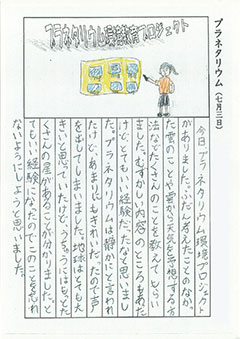 プラネタリウム（七月三日）
プラネタリウム環境教育プロジェクト
今日プラネタリウム環境プロジェクト
がありました。ふだん考えたことのなか
た雲のことや雲から天気を予想する方
法などたくさんのことを教えてもらい
ました。むずかしい内容のところもあた
けど、とてもいい経験だったなと思いまし
た。プラネタリウムは静かにと言われ
たけど、あまりにもきれいだったので声
を出してしまいました。地球はとても大
きいと思っていたけど、うちゅうにはもっとた
くさんの星があることが分かりました。と
てもいい経験になったのでこのことを忘れ
ないようにしようと思いました。